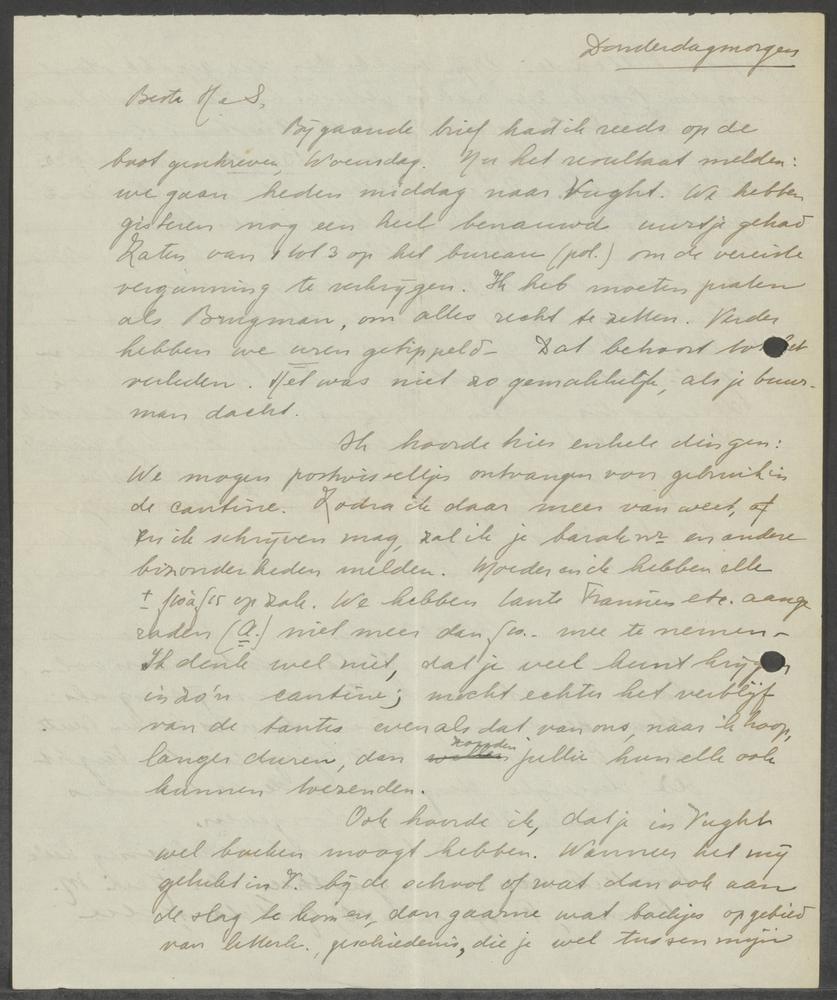 Donderdagmorgen
Beste H e S,
Bijgaande brief had ik reeds op de
boot geschreven, Woensdag. Nu het resultaat melden:
we gaan heden middag naar Vught. We hebben
gisteren nog een heel benauwd uurtje gehad
Zaten van 1 tot 3 op het bureau (pol.) om de vereiste
vergunning te verkrijgen. Ik heb moeten praten
als Brugman, om alles recht te zetten. Verder
hebben we uren getippeld - Dat behoort tot het
verleden. Het was niet zo gemakkelijk, als je buur-
man dacht.
Ik hoorde hier enkele dingen:
We mogen postwisseltjes ontvangen voor gebruik in
de cantine. Zodra ik daar meer van weet, of
en ik schrijven mag, zal ik je barak nr en andere
bizonderheden melden. Moeder en ik hebben elk
± f10 à f15 op zak. We hebben tante Francien etc. aange
raden (A.) niet meer dan f10.- mee te nemen -
Ik denk wel niet, dat je veel kunt krijgen
in zo'n cantine; mocht echter het verblijf
van de tantes evenals dat van ons, naar ik hoop,
langer duren, dan zouden jullie hun elk ook
kunnen toezenden.
Ook hoorde ik, dat je in Vught
wel boeken moogt hebben. Wanneer het mij
gelukt in V. bij de school of wat dan ook aan
de slag te komen, dan gaarne wat boekjes op gebied
van letterk., geschiedenis, die je wel tussen mijn